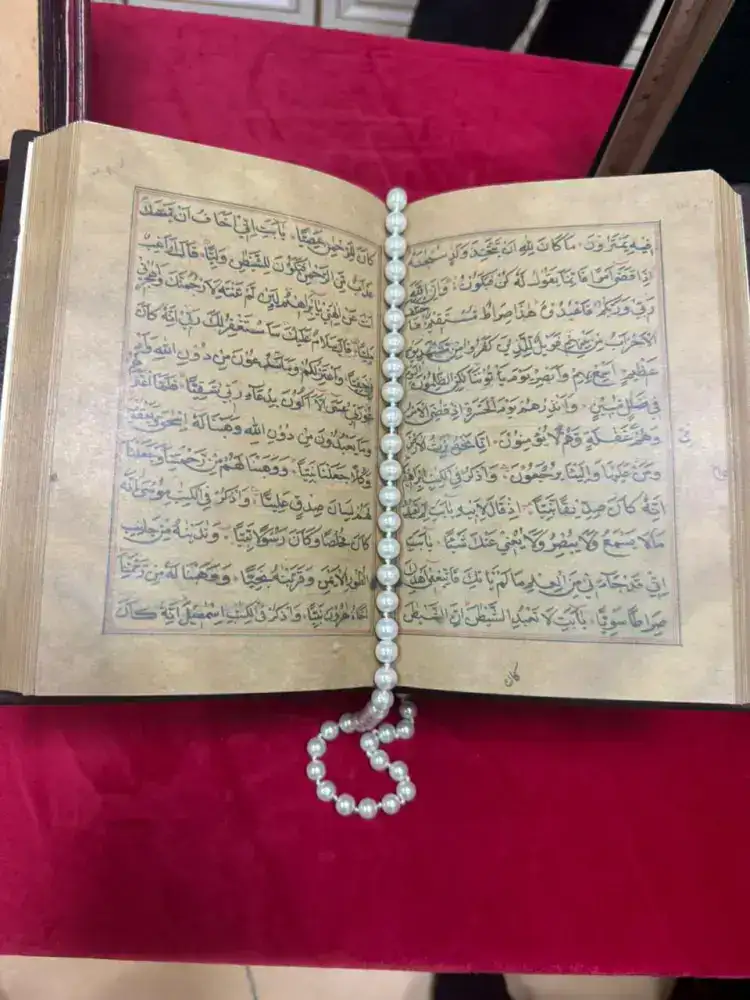 فِيهِ يَمْتَرُونَ مَا كَانَ لِلّٰهِ اَنْ يَتَّخِذَ مِنْ وَلَدٍ سُبْحٰنَهُ
اِذَا قَضٰى اَمْرًا فَاِنَّمَا يَقُولُ لَهُ كُنْ فَيَكُونُ وَاِنَّ اللّٰهَ
رَبِّي وَرَبُّكُمْ فَاعْبُدُوهُ هٰذَا صِرَاطٌ مُسْتَقِيمٌ فَاخْتَلَفَ
الْاَحْزَابُ مِنْ بَيْنِهِمْ فَوَيْلٌ لِلَّذِينَ كَفَرُوا مِنْ مَشْهَدِ يَوْمٍ
عَظِيمٍ اَسْمِعْ بِهِمْ وَاَبْصِرْ يَوْمَ يَاْتُونَنَا لٰكِنِ الظَّالِمُونَ الْيَوْمَ
فِي ضَلٰلٍ مُبِينٍ وَاَنْذِرْهُمْ يَوْمَ الْحَسْرَةِ اِذْ قُضِيَ الْاَمْرُ
وَهُمْ فِي غَفْلَةٍ وَهُمْ لَا يُؤْمِنُونَ اِنَّا نَحْنُ نَرِثُ الْاَرْضَ
وَمَنْ عَلَيْهَا وَاِلَيْنَا يُرْجَعُونَ وَاذْكُرْ فِي الْكِتٰبِ اِبْرٰهِيمَ
اِنَّهُ كَانَ صِدِّيقًا نَبِيًّا اِذْ قَالَ لِاَبِيهِ يَا اَبَتِ لِمَ تَعْبُدُ
مَا لَا يَسْمَعُ وَلَا يُبْصِرُ وَلَا يُغْنِي عَنْكَ شَيْئًا يَا اَبَتِ
اِنِّي قَدْ جَاءَنِي مِنَ الْعِلْمِ مَا لَمْ يَاْتِكَ فَاتَّبِعْنِي اَهْدِكَ
صِرَاطًا سَوِيًّا يَا اَبَتِ لَا تَعْبُدِ الشَّيْطٰنَ اِنَّ الشَّيْطٰنَ
كان
كَانَ لِلرَّحْمٰنِ عَصِيًّا يَا اَبَتِ اِنِّي اَخَافُ اَنْ يَمَسَّكَ
عَذَابٌ مِنَ الرَّحْمٰنِ فَتَكُونَ لِلشَّيْطٰنِ وَلِيًّا قَالَ اَرَاغِبٌ
اَنْتَ عَنْ اٰلِهَتِي يَا اِبْرٰهِيمُ لَئِنْ لَمْ تَنْتَهِ لَاَرْجُمَنَّكَ وَاهْجُرْنِي
مَلِيًّا قَالَ سَلَامٌ عَلَيْكَ سَاَسْتَغْفِرُ لَكَ رَبِّي اِنَّهُ كَانَ
بِي حَفِيًّا وَاَعْتَزِلُكُمْ وَمَا تَدْعُونَ مِنْ دُونِ اللّٰهِ وَاَدْعُوا
رَبِّي عَسٰى اَلَّا اَكُونَ بِدُعَاءِ رَبِّي شَقِيًّا فَلَمَّا اعْتَزَلَهُمْ
وَمَا يَعْبُدُونَ مِنْ دُونِ اللّٰهِ وَهَبْنَا لَهُ اِسْحٰقَ وَيَعْقُوبَ
وَكُلًّا جَعَلْنَا نَبِيًّا وَوَهَبْنَا لَهُمْ مِنْ رَحْمَتِنَا وَجَعَلْنَا
لَهُمْ لِسَانَ صِدْقٍ عَلِيًّا وَاذْكُرْ فِي الْكِتٰبِ مُوسٰى اِنَّهُ
كَانَ مُخْلَصًا وَكَانَ رَسُولًا نَبِيًّا وَنٰدَيْنٰهُ مِنْ جَانِبِ
الطُّورِ الْاَيْمَنِ وَقَرَّبْنٰهُ نَجِيًّا وَوَهَبْنَا لَهُ مِنْ رَحْمَتِنَا
اَخَاهُ هٰرُونَ نَبِيًّا وَاذْكُرْ فِي الْكِتٰبِ اِسْمٰعِيلَ اِنَّهُ كَانَ